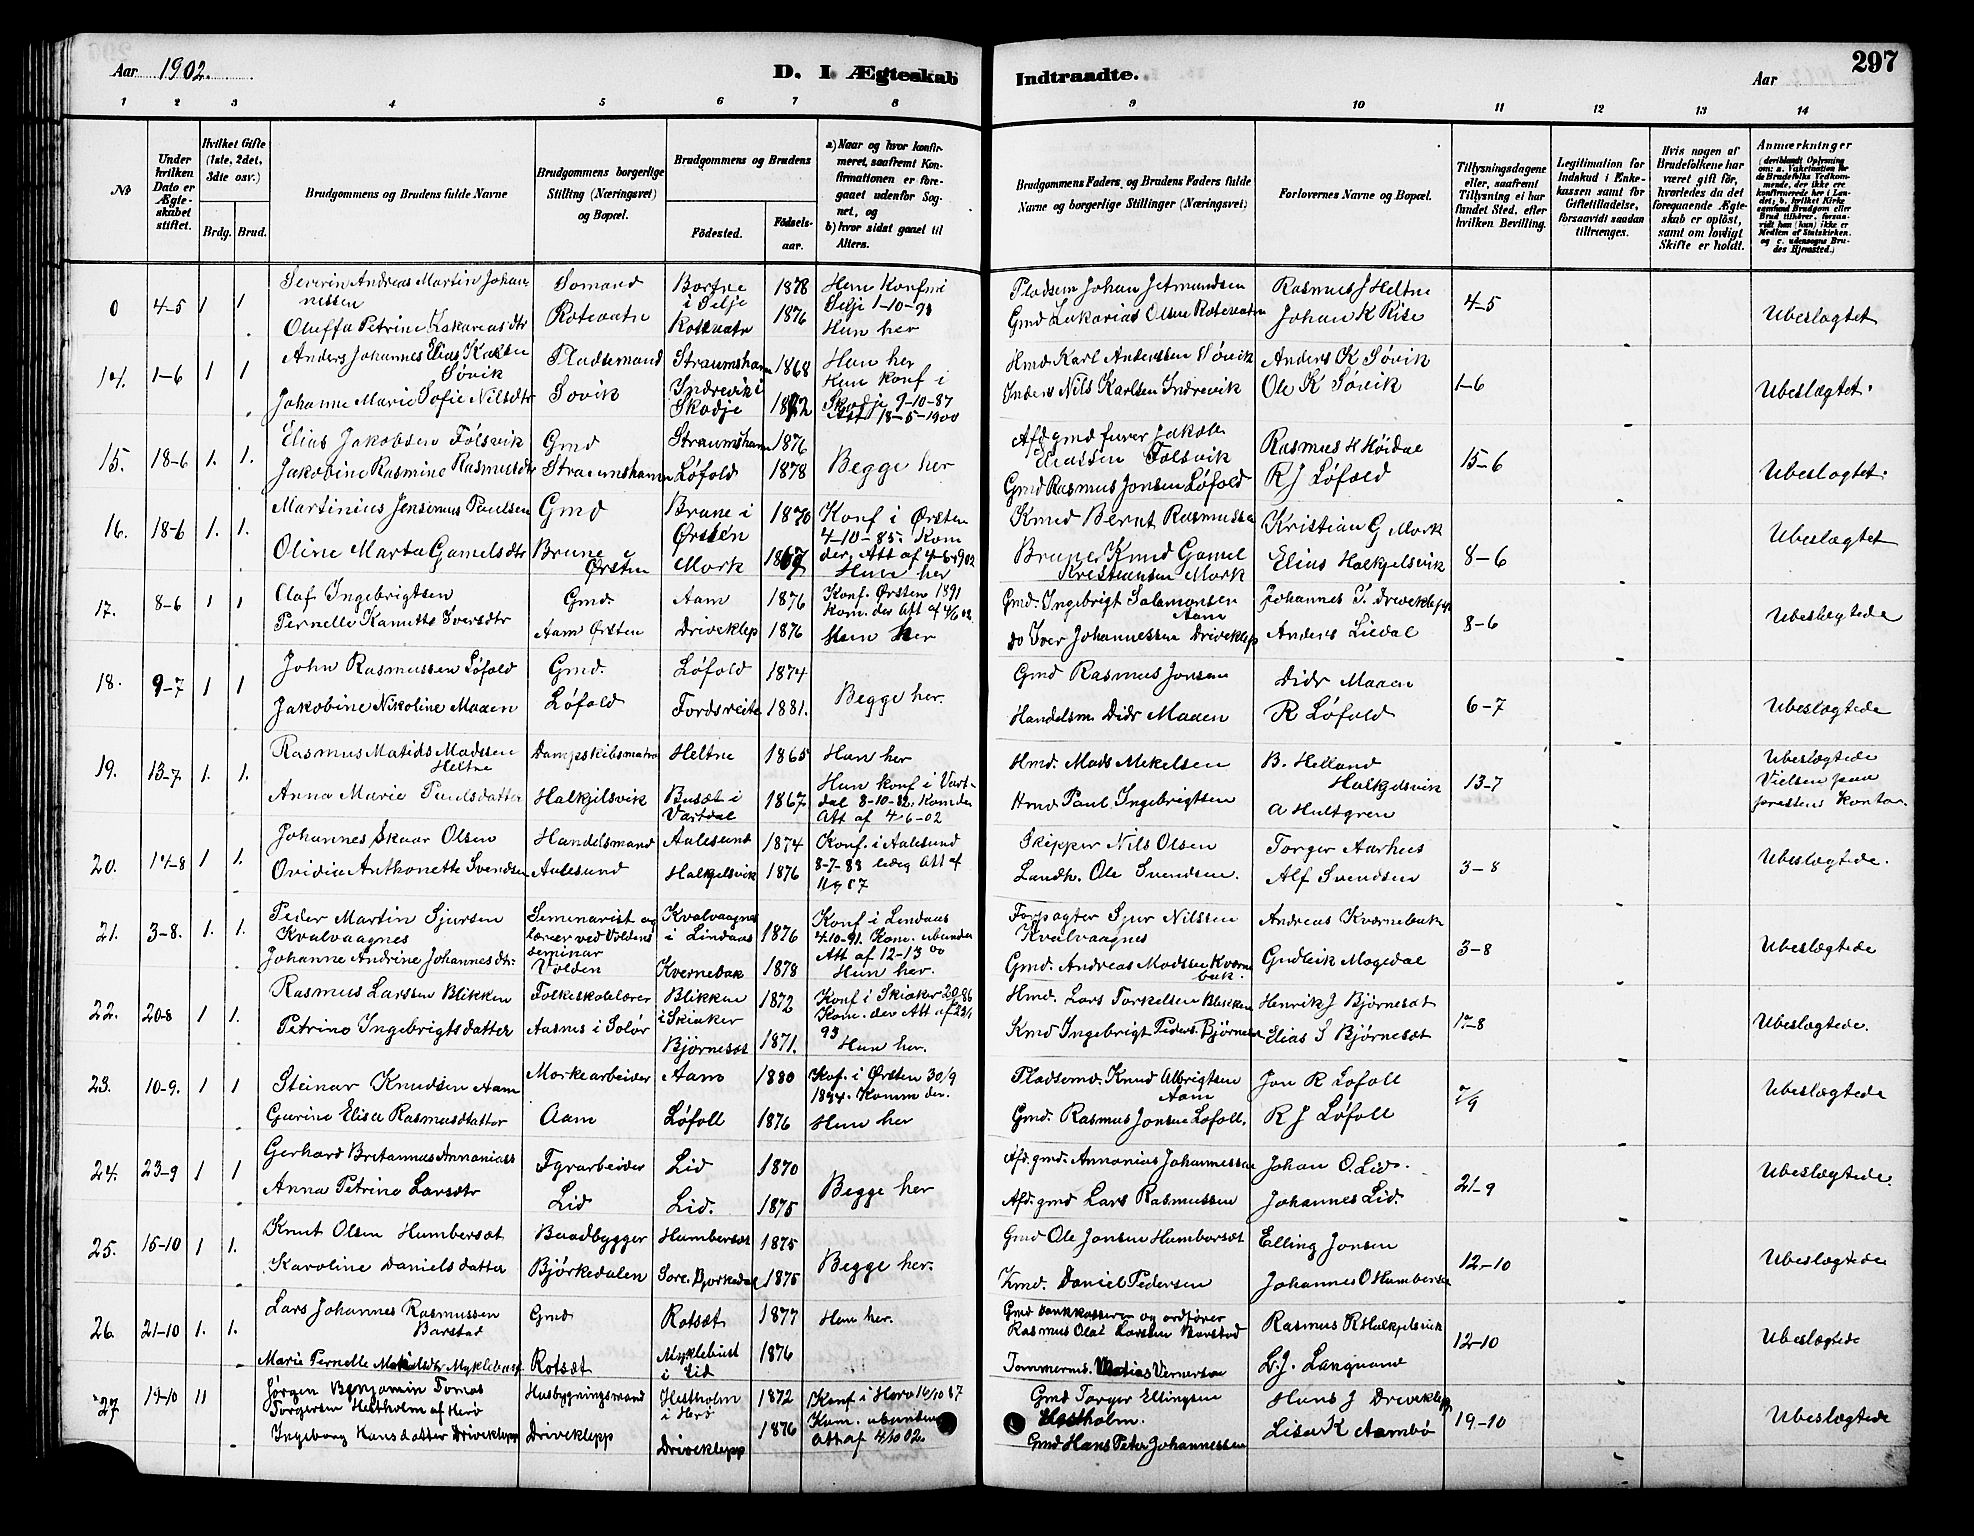 Aar 1902. D. I. Ægteskab Indtraadte. Aar 297
1 2 3 4 5 6 7 8 9 10 11 12 13 14
No
Under hvilken Dato er Ægteskabet stiftet.
Hvilket Gifte (1ste, 2det, 3die osv.)
Brdg. Brud.
Brudgommens og Brudens fulde Navne
Brudgommens borgerlige Stilling (Næringsvei) og Bopæl.
Brudgommens og Brudens
Fødested. Fødselsaar.
a) Naar og hvor konfirmeret, saafremt Konfirmationen er foregaaet udenfor Sognet, og
b) hvor sidst gaaet til Alters.
Brudgommens Faders, og Brudens Faders fulde Navne og borgerlige Stillinger (Næringsvei)
Forlovernes Navne og Bopæl.
Tillysningsdagene eller, saafremt Tillysning ei har fundet Sted, efter hvilken Bevilling.
Legitimation for Indskud i Enkekassen samt for Giftetilladelse, forsaavidt saadan tiltrænges.
Hvis nogen af Brudefolkene har været gift før, hvorledes da det foregaaende Ægteskab er opløst, samt om lovligt Skifte er holdt.
Anmærkninger
0 4-5 1 1 Severin Andreas Martin Johannessen Sømand Bortne i Selje 1878 Han Konf i Selje 1-10-93 Pladsm Johan Jetmundsen Rasmus J Heltne 4-5 Ubeslægtet
Oluffa Petrine Zakariasdtr Rotevatn Rotevatn 1876 Hun her Gmd Zakarias Olsen Rotevatn Johan K Rise
14. 1-6 1 1 Anders Johannes Elias Karlsen Søvik Pladsemand Straumshamn 1868 Han her Hmd Karl Anderssen Søvik Anders K Søvik 1-6 Ubeslægtet.
Johanne Marie Sofie Nilsdtr Søvik Indrevik i Skodje 1872 Hun konf i Skodje 9-10-87 Att 18-5-1900 Inders Nils Karlsen Indrevik Ole K Søvik
15. 18-6 1. 1. Elias Jakobsen Følsvik Gmd Straumshamn 1876 Begge her Afd gmd furer Jakob Eliassen Følsvik Rasmus H Høidal 15-6 Ubeslægtet.
Jakobine Rasmine Rasmusdtr Straumshamn Løfold 1878 Gmd Rasmus Jonsen Løfold R J Løfold
16. 18-6 1. 1. Martinius Jensenius Paulsen Gmd Brune i Ørsten 1870 Konf i Ørsten 4-10-85. Kom der, Att af 4-6-1902 Kmd Bernt Rasmussen Brune Kristian G Mork 8-6 Ubeslægtet
Oline Marta Gamelsdtr Brune Ørsten Mork 1867 Hun her Kmd Gamel Kristiansen Mork Elias Halkjelsvik
17. 8-6 1 1 Olaf Ingebrigtsen Gmd. Aam 1876 Konf. Ørsten 1891 Kom. der Att af 4/6 02. Gmd. Ingebrigt Salamonsen Aam Johannes P. Driveklep 8-6 Ubeslægtede
Pernelle Kanutte Iversdtr Aam Ørsten Driveklep 1876 Hun her do Iver Johannessen Driveklep Anders Liedal
18. 9-7 1 1 John Rasmussen Løfold Gmd. Løfold 1874 Begge her. Gmd Rasmus Jonsen Didr Maaen 6-7 Ubeslægtede
Jakobine Nikoline Maaen Løfold Fordsreite 1881. Handelsm. Didr Maaen R Løfold
19. 13-7 1. 1. Rasmus Matids Madssen Heltne Dampskibsmatro Heltne 1865 Han her Hmd. Mads Mekelsen B. Helland Halkjelsvik 13-7 Ubeslægtede Vielsen paa prestens kontor.
Anna Marie Paulsdatter Halkjelsvik Busæt i Vartdal 1867 Hun konf i Vartdal 8-10-82. Kom der Att af 4 6-02 Hmd Paul Ingebrigtsen A Hultgren
20. 14-8 1 1. Johannes Skaar Olsen Handelsmand Aalesund 1874 Konf. i Aalesund 8-7-88 ledig Att af Skipper Nils Olsen Torger Aarhus 3-8 Ubeslægtede.
Ovidia Anthonette Svendsen Aalesund Halkjelsvik 1876 Landh. Ole Svendsen. Alf Svendsen
21. 3-8. 1. 1. Peder Martin Sjursen Kvalvaagnes Seminarist og lærer ved Voldens seminar Volden Kvalvaagnes i Lindaas 1876 Konf i Lindaas 4.10-91. Kom. ubunden Att af 12-13 00 Forpagter Sjur Nilssen Kvalvaagnes Andreas Kvernebak 3-8 Ubeslægtede
Johanne Andrine Johannesdtr: Kvernebak 1878 Hun her. Gmd. Andreas Madssen Kværnebak. Gudleik Magedal
22. 20-8 1 1. Rasmus Larssen Blikken Folkeskolelærer Blikken i Skiaker 1872 Konf i Skiaker Kom. der Att af 93 Hmd. Lars Torkelsen Blikken Henrik J Bjørneset Ubeslægtede.
Petrine Ingebrigtsdatter Aasnes i Solør Bjørneset 1871. Hun her. Kmd Ingebrigt Peders. Bjørneset Elias S Bjørneset
23. 10-9. 1 1 Steinar Knudsen Aam Morkearbeider Aam 1880 Kof. i Ørsten 30/9 1894. Komm der. Pladsemd. Knud Albrigtsen Aam Jon R Løfoll Ubeslægtede
Gurine Elise Rasmusdatter Aam Løfoll 1876 Hun her Gmd. Rasmus Jonsen Løfoll. R J Løfoll
24. 23-9 1 1 Gerhard Britannus Annaniass Fyrarbeider Lid 1870 Begge her Afd. gmd. Annanias Johannessen Johan O. Lid. 21-9 Ubeslægtede.
Anna Petrine Larsdtr Lid Lid. 1875 Afd. gmd Lars Rasmussen Johannes Lid.
25. 16-10 1 1. Knut Olsen Humberset Baadbygger Humberset 1875 Begge her. Gmd Ole Jonsen Humborset Elling Jonsen 12-10 Ubeslægtede
Karoline Danielsdatter Bjørkedalen Søre. Bjorkedal 1875 Kmd. Daniel Pedersen Johannes O Humberset
26. 21-10 1. 1. Lars Johannes Rasmussen Barstad Gmd Rotsæt 1877 Han her. Gmd bankkasserer og ordfører Rasmus Olai Larssen Barstad Rasmus R Halkjelsvik 12-10 Ubeslægtede
Marie Pernelle Matiasdtr Myklebust Rotsæt Myklebust i Eid 1876 Tømmerms. Matias Vernersen L. J. Langvand
27. 19-10 1 1 Jørgen Benjamin Tomas Torgersen Hestholm af Herø Husbygningsmand Hestholm i Herø 1872 Konf i Herø 16/10 87 Kom. ubunden Att af 4/10 02. Gmd Torger Ellingsen Hestholm. Hans J Driveklep 19-10 Ubeslægtede
Ingeborg Hansdatter Driveklepp Driveklepp Driveklepp 1876 Gmd Hans Peter Johannessen Lisa K Aambø